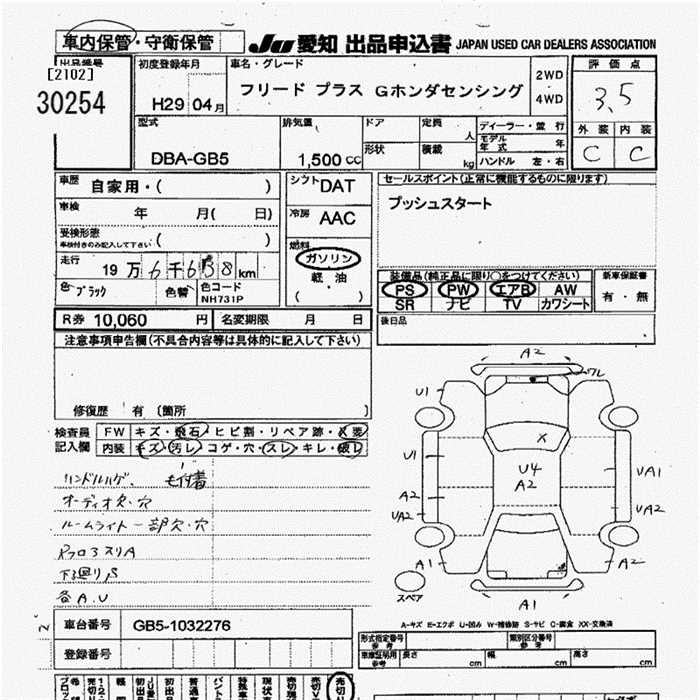 車内保管・守衛保管
JU 愛知 出品申込書 JAPAN USED CAR DEALERS ASSOCIATION
出品番号
[2102]
30254
初度登録年月
H29 04月
車名・グレード
フリード プラス Gホンダセンシング
2WD
4WD
評価点
3.5
外装 内装
C C
型式
DBA-GB5
排気量
1,500 CC
ドア
形状
定員
人
積載
kg
ディーラー・並行
モデル年式 年
ハンドル 左・右
車歴
自家用・( )
車検
年 月( 日)
受検形態
車検付きのみ記入して下さい ( )
走行
19万6千638km
色 ブラック
色替
色コード
NH731P
シフト DAT
冷房 AAC
燃料
ガソリン
軽・油
( )
セールスポイント(正常に機能するものに限ります)
プッシュスタート
装備品(純正品に限り〇をつけてください)
PS PW エアB AW
SR ナビ TV カワシート
新車保証書
有・無
後日品
R券 10,060 円
名変期限 月 日
注意事項申告欄(不具合内容等は具体的に記入して下さい)
修復歴 有 (箇所 )
検査員
記入欄
FW キズ・飛石・ヒビ割・リペア跡・X要
内装 キズ・汚レ・コゲ・穴・スレ・キレ・破レ
ハンドルハゲ
オーディオ欠・穴
ルームライト一部欠・穴
下廻りS
各A.U
A2
ワレ
U1
U1
A2
UA2
A1
X
U4
A2
UA1
UA2
A2
A1
スペア
A-キズ E-エクボ U-凹み W-補修跡 S-サビ C-腐食 XX-交換済
車台番号 GB5-1032276
登録番号
型式指定番号
参考
類別区分番号
参考
車庫証明用
参考
長さ cm
幅 cm
高さ cm
売切り